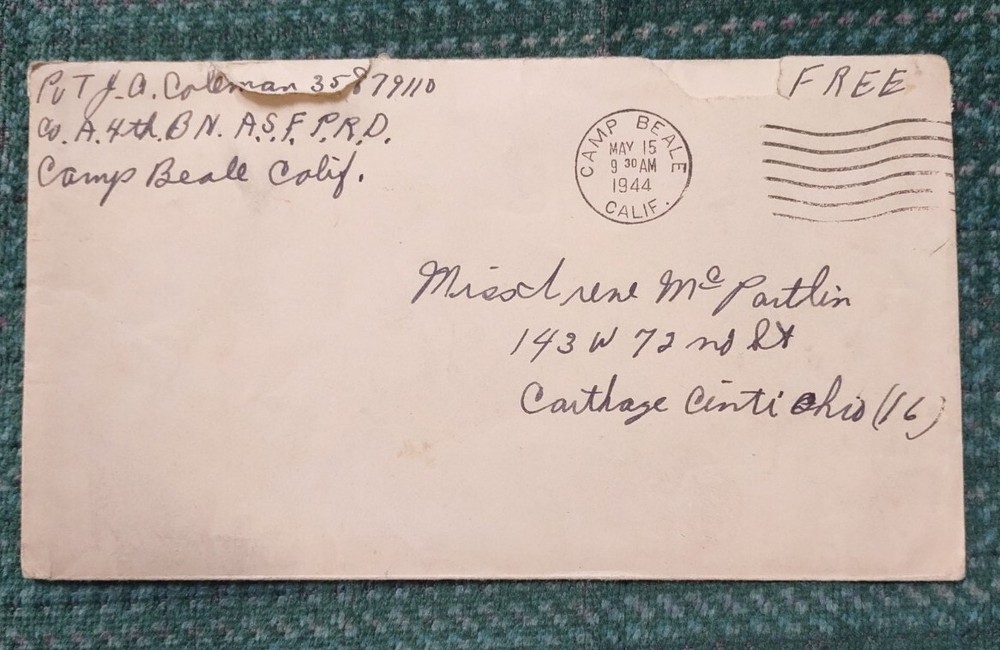 Pvt J. A. Coleman 35879110
Co. A. 4th. B N. A.S.F. P.R.D.
Camp Beale Calif.
FREE
CAMP BEALE
MAY 15
9 30 AM
1944
CALIF.
Miss Irene McPartlin
143 W 72 nd St
Carthage Cinti Ohio (16)